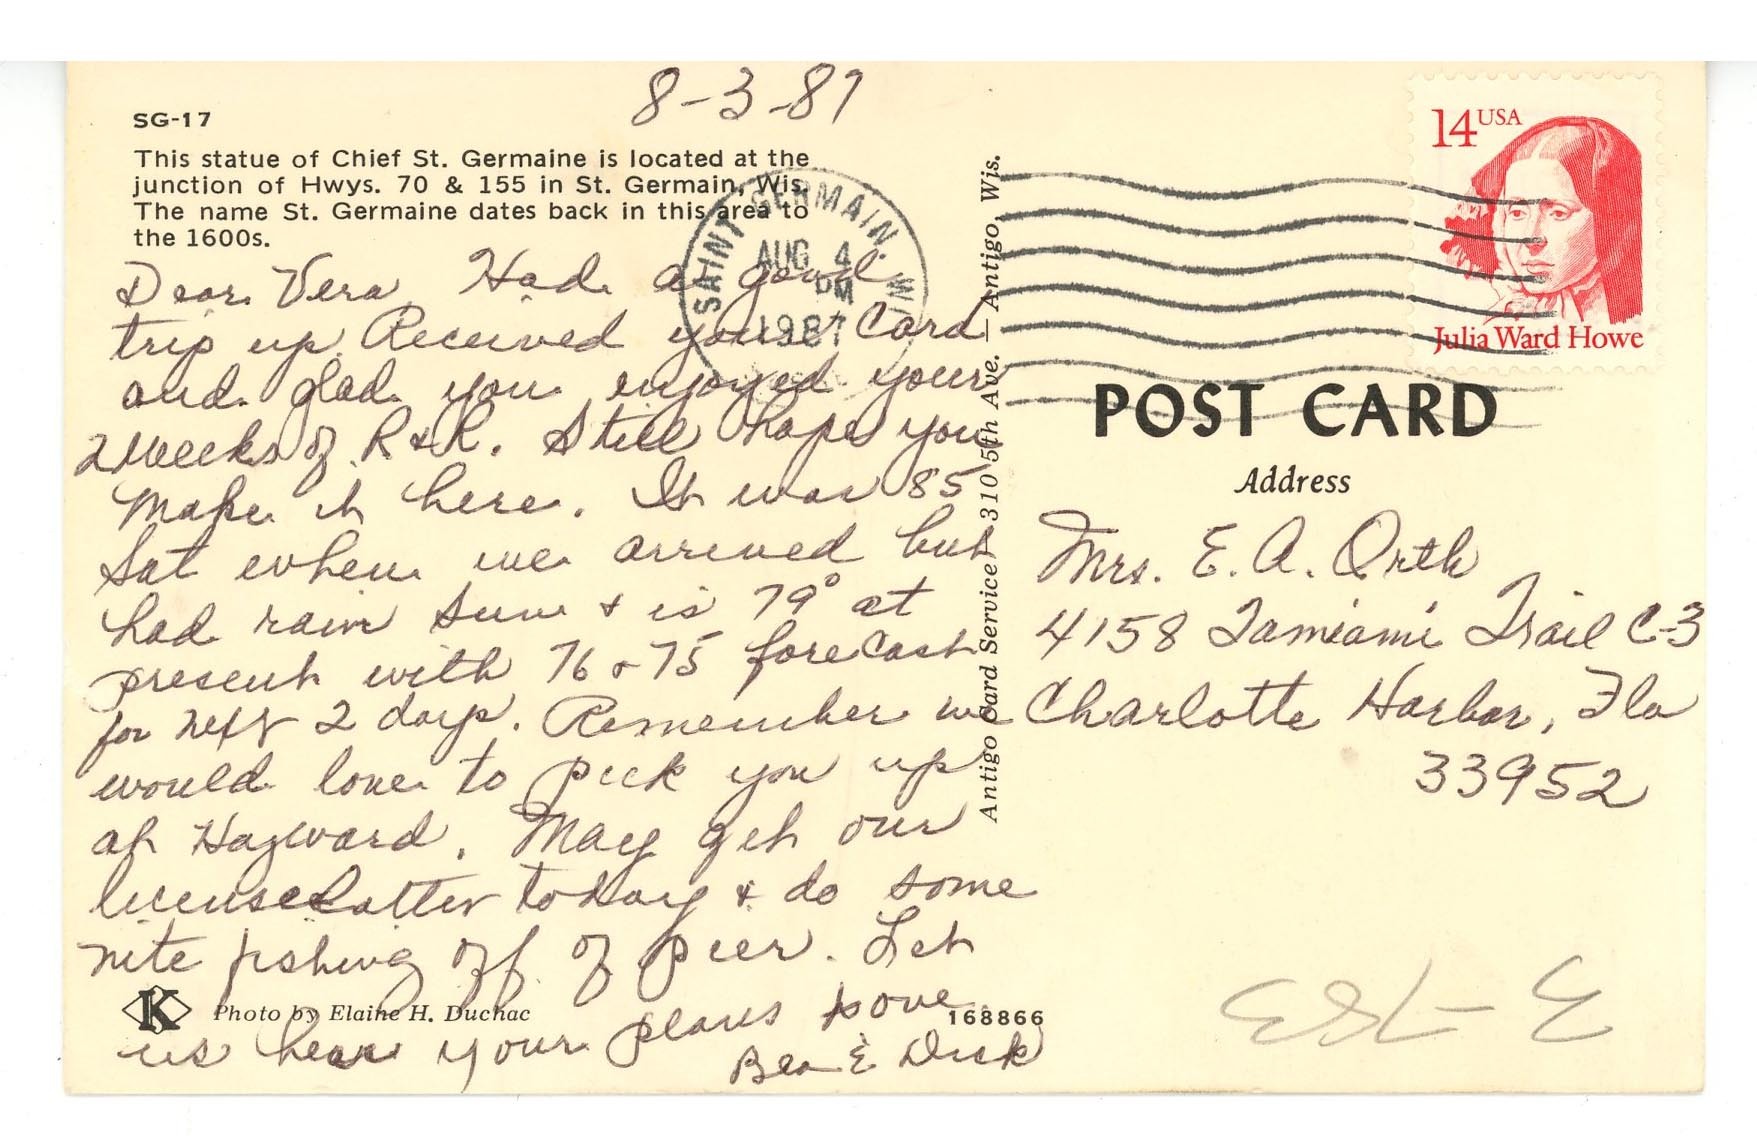 8-3-87
SG-17
This statue of Chief St. Germaine is located at the
junction of Hwys. 70 & 155 in St. Germain, Wis.
The name St. Germaine dates back in this area to
the 1600s.
Dear Vera, Had a good
trip up. Received your card
and glad you enjoyed your
2 weeks of R & R. Still hope you
make it here. It was 85
Sat when we arrived but
had rain Sun & is 79° at
present with 76 & 75 forecast
for next 2 days. Remember we
would love to pick you up
at Hayward. May get our
license later today & do some
nite fishing off of pier. Let
us hear your plans Love
Bea & Dick
Photo by Elaine H. Duchac
K
168866
SAINT GERMAIN, WI
AUG 4
PM
1987
Antigo Card Service 310 5th Ave. — Antigo, Wis.
14 USA
Julia Ward Howe
POST CARD
Address
Mrs. E. A. Orth
4158 Tamiami Trail C-3
Charlotte Harbor, Fla
33952